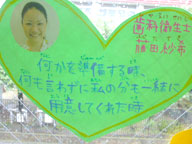 歯科衛生士
紗希
何かを準備する時、
何も言わずに私の分も一緒に
用意してくれた時